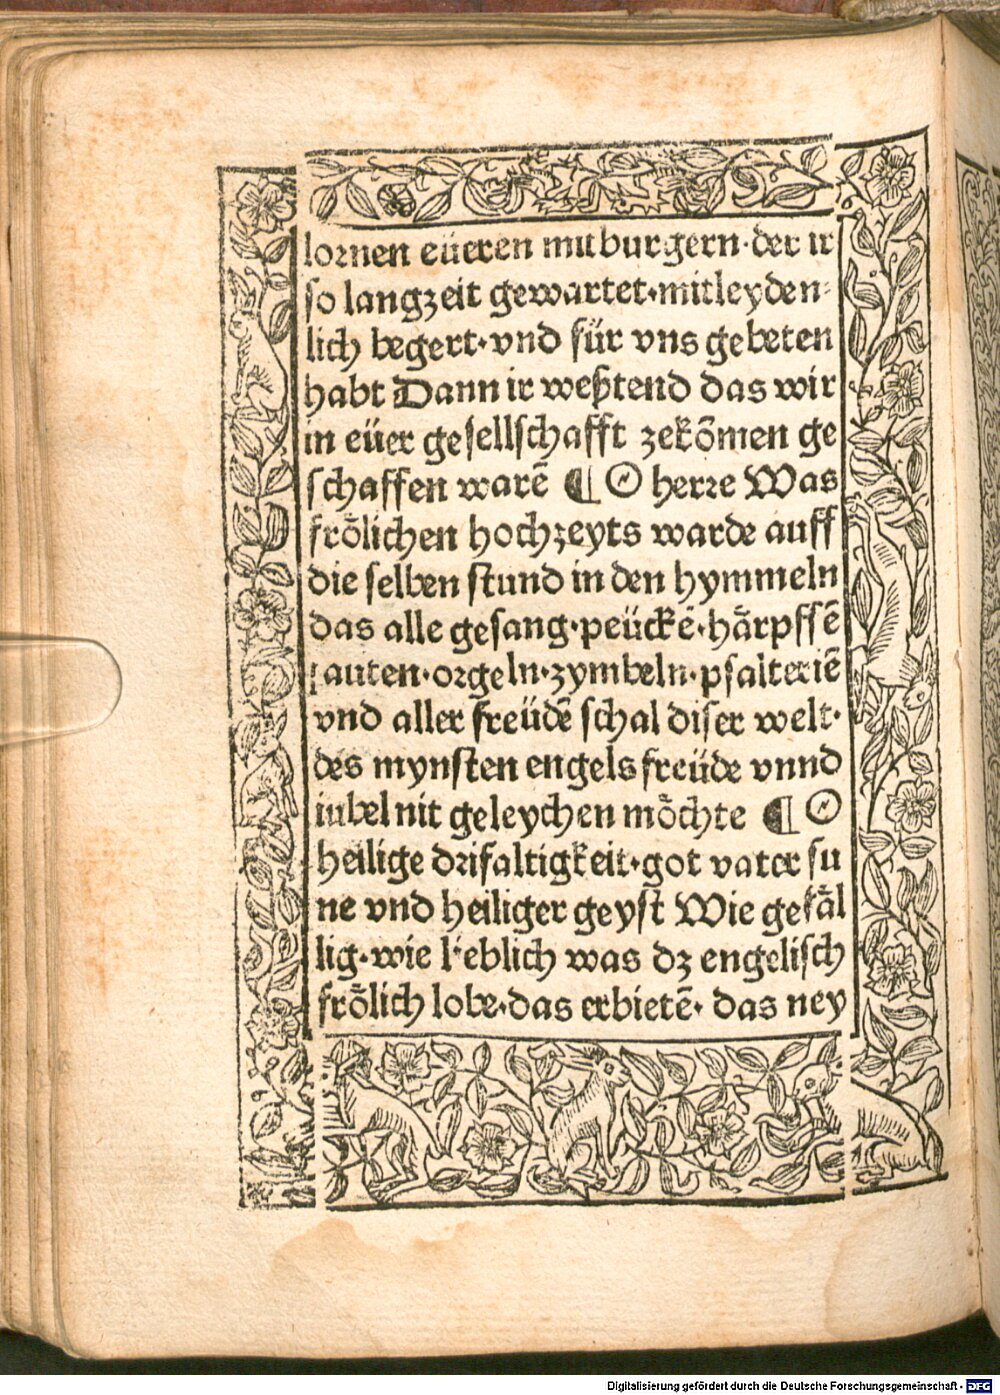 lornen eüeren mitburgern·der ir
so langzeit gewartet·mitleyden⸗
lich begert·vnd für vns gebeten
habt Dann ir weßtend das wir
in eüer gesellschafft zekōmen ge
schaffen warē ¶ O herre Was
frőlichen hochzeyts warde auff
die selben stund in den hymmeln
das alle gesang·peückē·hårpffē
lauten·orgeln·zymbeln·psalteriē
vnd aller freüdē schal diser welt·
des mynsten engels freüde vnnd
iubel nit geleychen mőchte ¶ O
heilige drifaltigkeit·got vater su
ne vnd heiliger geyst Wie gefål
lig·wie lieblich was dz engelisch
frőlich lobe·das erbietē· das ney
Digitalisierung gefördert durch die Deutsche Forschungsgemeinschaft - DFG